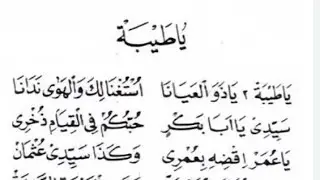 يَاطَيْبَةْ
يَاطَيْبَةْ ٢ يَاذَوَالْعَيَانَا اُسْتُغْنَالِكْ وَالْهَوٰى نَدَانَا
سَيِّدِىْ يَااَبَا بَكْرٍ حُبُّكُمْ فِى الْقِيَامِ ذُخْرِى
يَاعُمَرْ اِقْضِهِ بِعُمْرِى وَكَذَا سَيِّدِىْ عُثْمَانْ